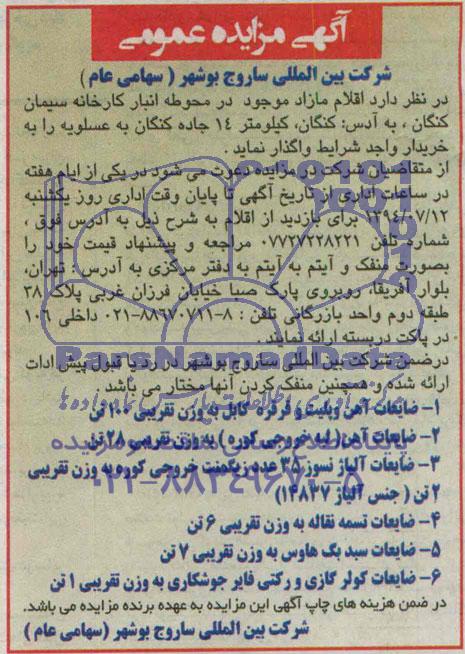 آگهی مزایده عمومی
شرکت بین المللی ساروج بوشهر ( سهامی عام )
در نظر دارد اقلام مازاد موجود در محوطه انبار کارخانه سیمان
کنگان ، به آدس: کنگان، کیلومتر ۱۴ جاده کنگان به عسلویه را به
خریدار واجد شرایط واگذار نماید .
از متقاضیان شرکت در مزایده دعوت می شود در یکی از ایام هفته
در ساعات اداری از تاریخ آگهی تا پایان وقت اداری روز یکشنبه
۱۳۹۴/۰۷/۱۲ برای بازدید از اقلام به شرح ذیل به آدرس فوق ،
شماره تلفن ۰۷۷۲۷۲۲۸۲۲۱ مراجعه و پیشنهاد قیمت خود را
بصورت منفک و آیتم به آیتم به دفتر مرکزی به آدرس : تهران،
بلوار آفریقا، روبروی پارک صبا خیابان فرزان غربی پلاک ۳۸
طبقه دوم واحد بازرگانی تلفن : ۸-۸۸۶۷۰۷۱۱-۰۲۱ داخلی ۱۰۶
در پاکت دربسته ارائه نمائند.
درضمن شرکت بین المللی ساروج بوشهر در رد یا قبول پیش ادات
ارائه شده و همچنین منفک کردن آنها مختار می باشد .
۱- ضایعات آهن وپلیت و قرقره کابل به وزن تقریبی ۱۰۰ تن
۲- ضایعات آهن( لبه خروجی کوره ) به وزن تقریبی ۲۸ تن
۳- ضایعات آلیاژ نسوز ۳۵ عدد زیگمنت خروجی کوره به وزن تقریبی
۲ تن ( جنس آلیاژ ۱،۴۸۳۷)
۴- ضایعات تسمه نقاله به وزن تقریبی ۶ تن
۵- ضایعات سبد بگ هاوس به وزن تقریبی ۷ تن
۶- ضایعات کولر گازی و رکتی فایر جوشکاری به وزن تقریبی ۱ تن
در ضمن هزینه های چاپ آگهی این مزایده به عهده برنده مزایده می باشد.
شرکت بین المللی ساروج بوشهر (سهامی عام )
ParsNamadData
۰۲۱-۸۸۳۴۹۶۷۰-۵